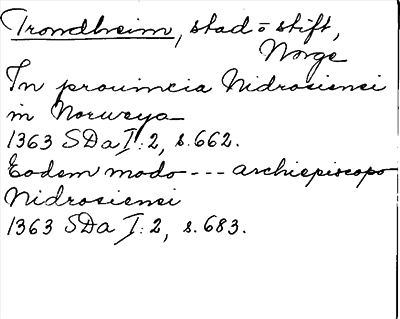 Trondheim, stad o stift,
Norge
In prouincia Nidrosiensi
in Norueya
1363 SDa I:2, s.662.
Eodem modo --- archiepiscopo
Nidrosiensi
1363 SDa I:2, s.683.